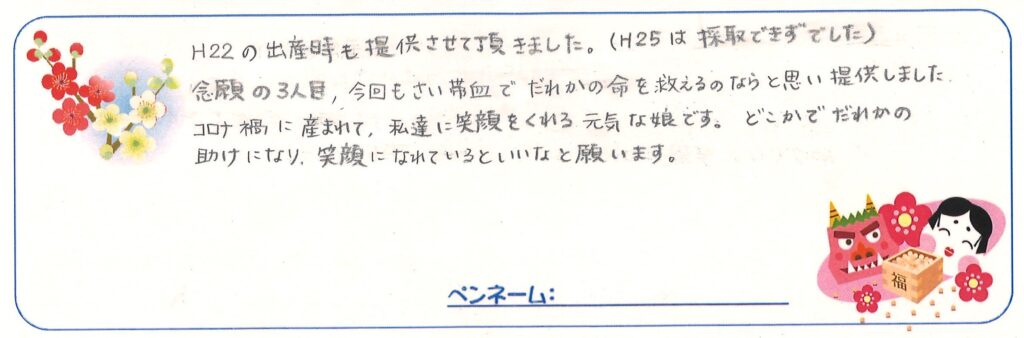 H22の出産時も提供させて頂きました。(H25は採取できずでした)
念願の3人目,今回もさい帯血でだれかの命を救えるのならと思い提供しました
コロナ禍に産まれて,私達に笑顔をくれる元気な娘です。どこかでだれかの
助けになり,笑顔になれているといいなと願います。
ペンネーム:
福